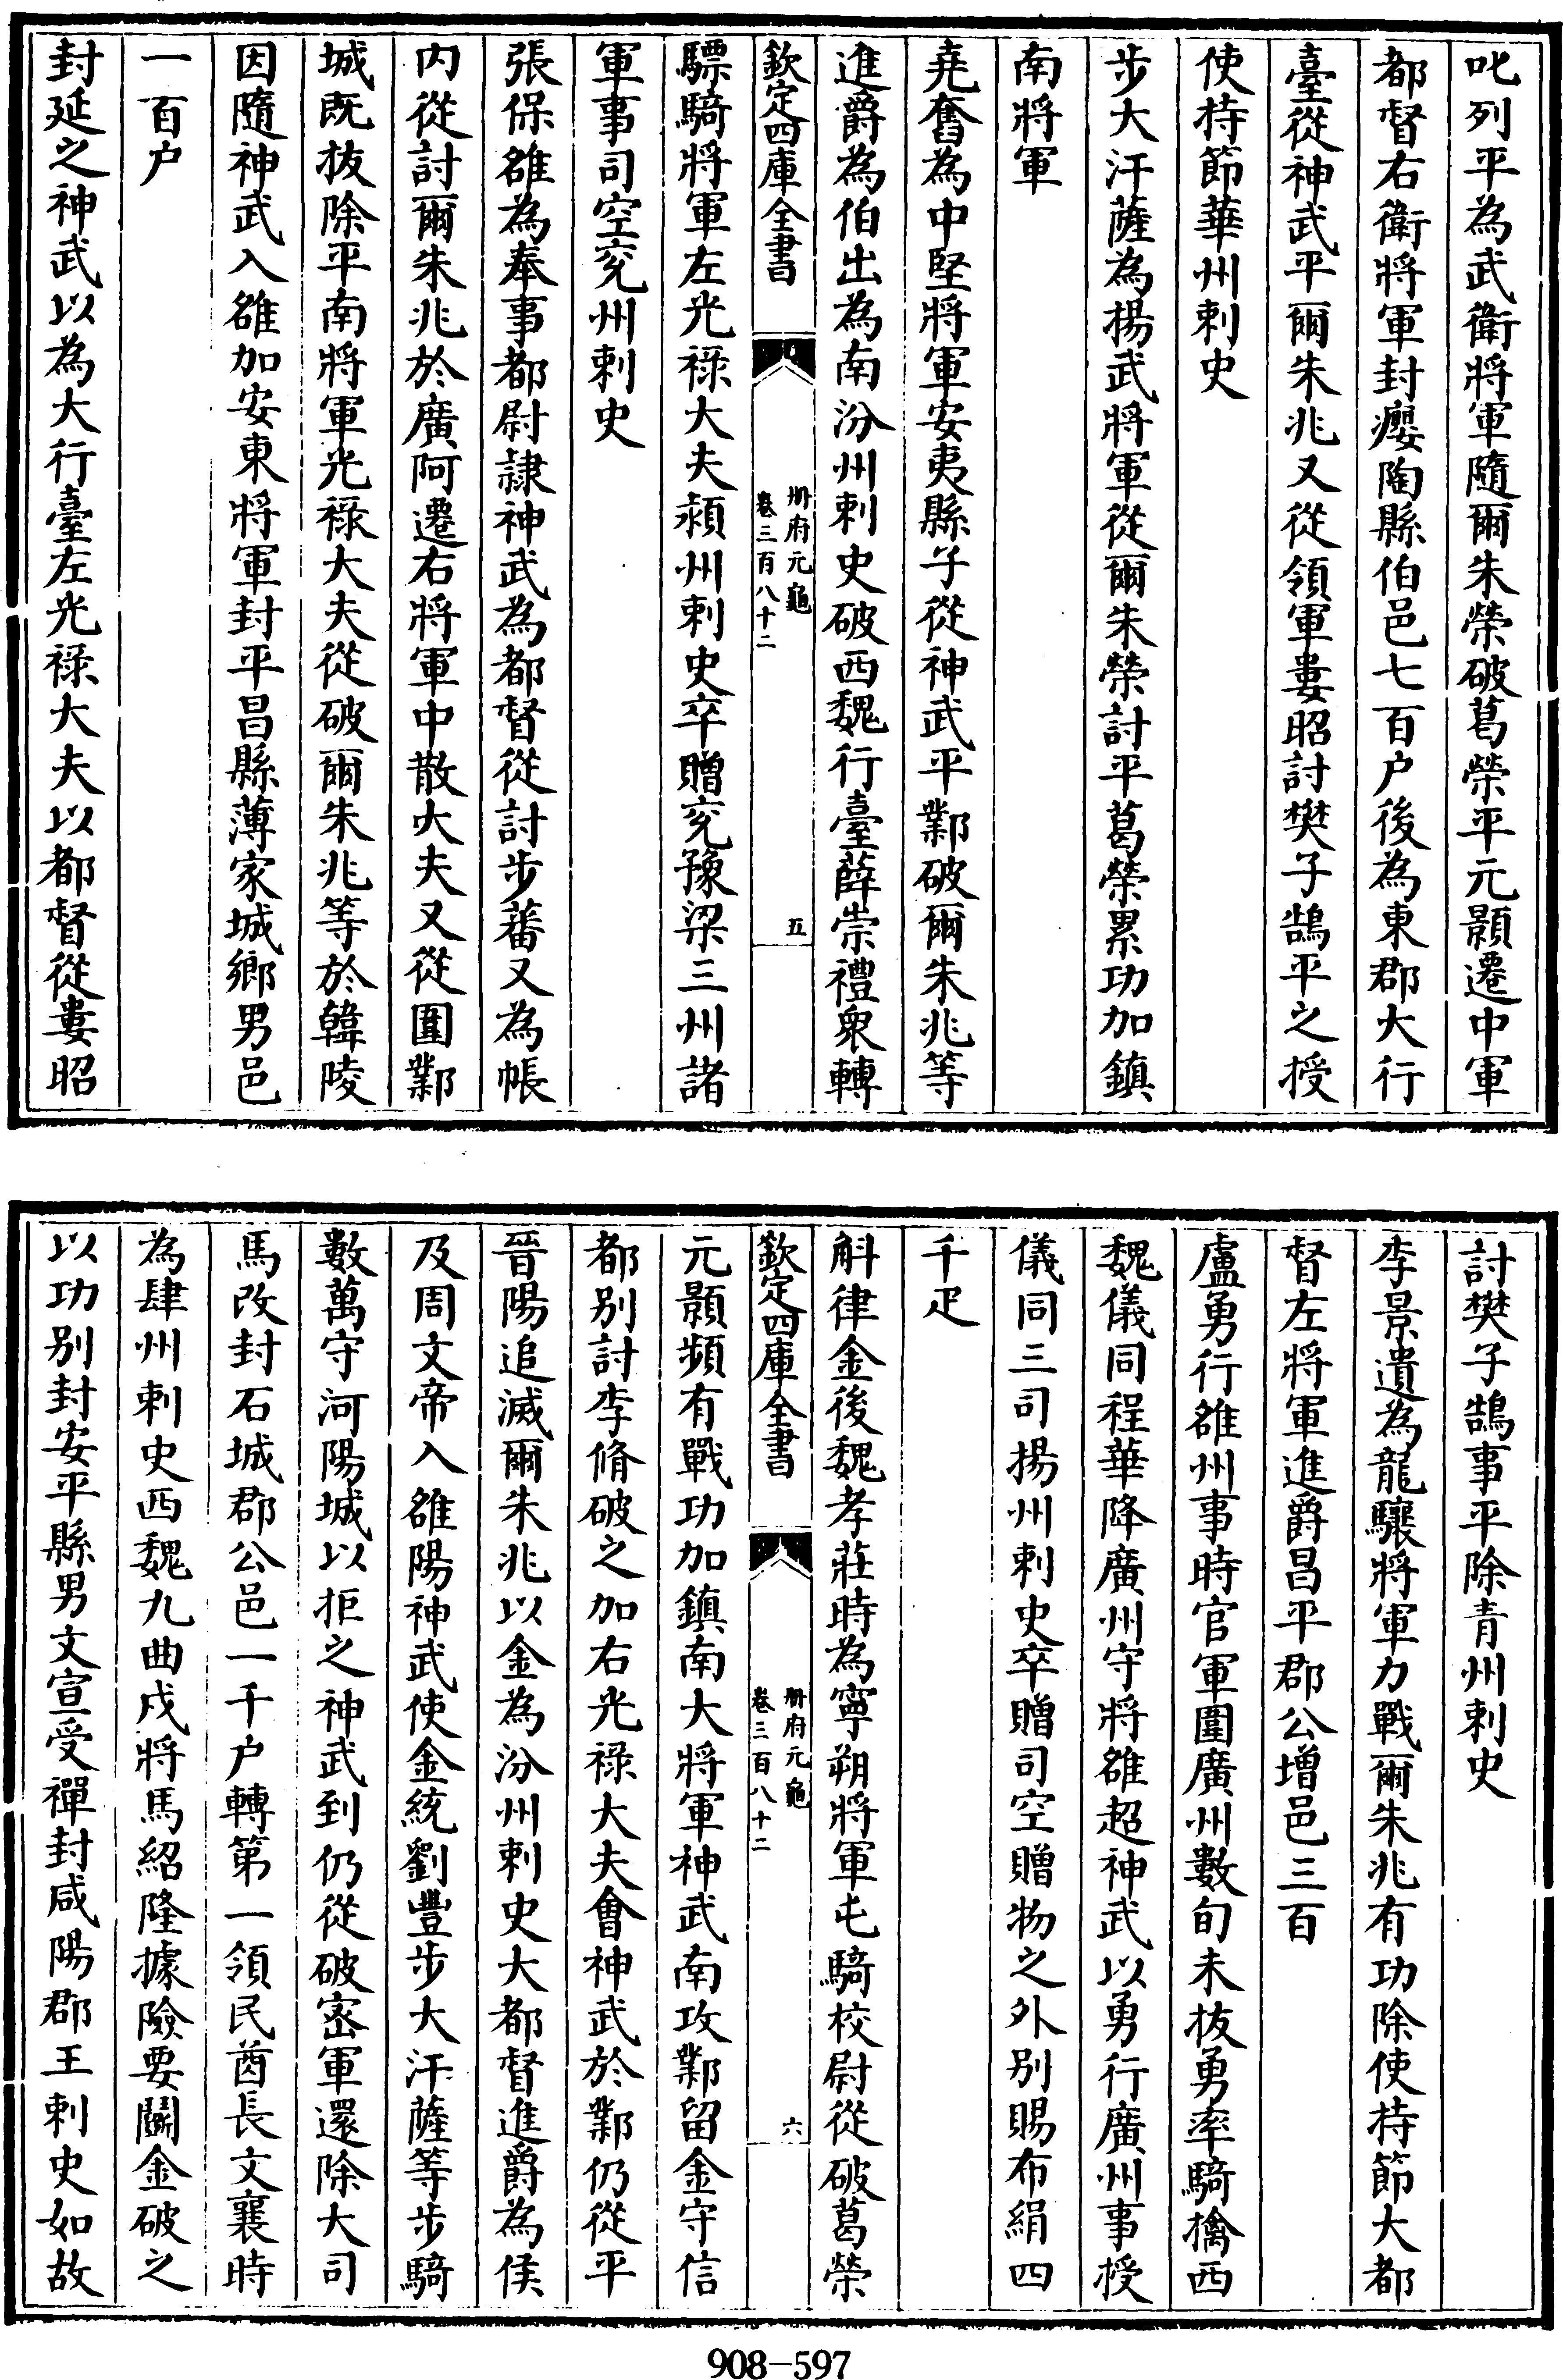 叱列平為武衛將軍隨爾朱榮破葛榮平元顥遷中軍
都督右衛將軍封癭陶縣伯邑七百户後為東郡大行
臺從神武平爾朱兆又從領軍婁昭討樊子鵠平之授
使持節華州刺史
步大汗薩為揚武將軍從爾朱榮討平葛榮累功加鎮
南將軍
堯奮為中堅將軍安夷縣子從神武平鄴破爾朱兆等
進爵為伯出為南汾州刺史破西魏行臺薛崇禮衆轉
欽定四庫全書
册府元龜
卷三百八十二
五
驃騎將軍左光禄大夫潁州刺史卒贈兖豫梁三州諸
軍事司空兖州刺史
張保雒為奉事都尉隷神武為都督從討步蕃又為帳
内從討爾朱兆於廣阿遷右將軍中散大夫又從圍鄴
城既拔除平南將軍光禄大夫從破爾朱兆等於韓陵
因隨神武入雒加安東將軍封平昌縣薄家城鄉男邑
一百户
封延之神武以為大行臺左光禄大夫以都督從婁昭
討樊子鵠事平除青州刺史
李景遺為龍驤將軍力戰爾朱兆有功除使持節大都
督左將軍進爵昌平郡公增邑三百
盧勇行雒州事時官軍圍廣州數旬未拔勇率騎擒西
魏儀同程華降廣州守將雒超神武以勇行廣州事授
儀同三司揚州刺史卒贈司空贈物之外别賜布絹四
千疋
斛律金後魏孝莊時為寧朔將軍屯騎校尉從破葛榮
欽定四庫全書
册府元龜
卷三百八十二
六
元顥頻有戰功加鎮南大將軍神武南攻鄴留金守信
都别討李脩破之加右光禄大夫會神武於鄴仍從平
晉陽追滅爾朱兆以金為汾州刺史大都督進爵為侯
及周文帝入雒陽神武使金統劉豐步大汗薩等步騎
數萬守河陽城以拒之神武到仍從破宻軍還除大司
馬改封石城郡公邑一千户轉第一領民酋長文襄時
為肆州刺史西魏九曲戍將馬紹隆據險要鬬金破之
以功别封安平縣男文宣受禪封咸陽郡王刺史如故
908-597